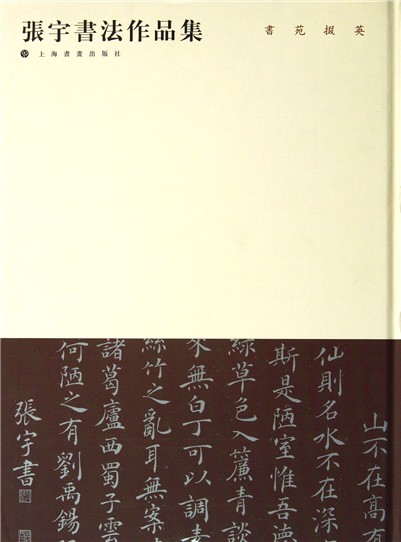 張宇書法作品集
上海書畫出版社
書苑掇英
山不在高有
仙則名水不在深
斯是陋室惟吾德
綠草色入簾青談
來無白丁可以調素
絲竹之亂耳無案
諸葛廬西蜀子雲
何陋之有劉禹錫
張宇書